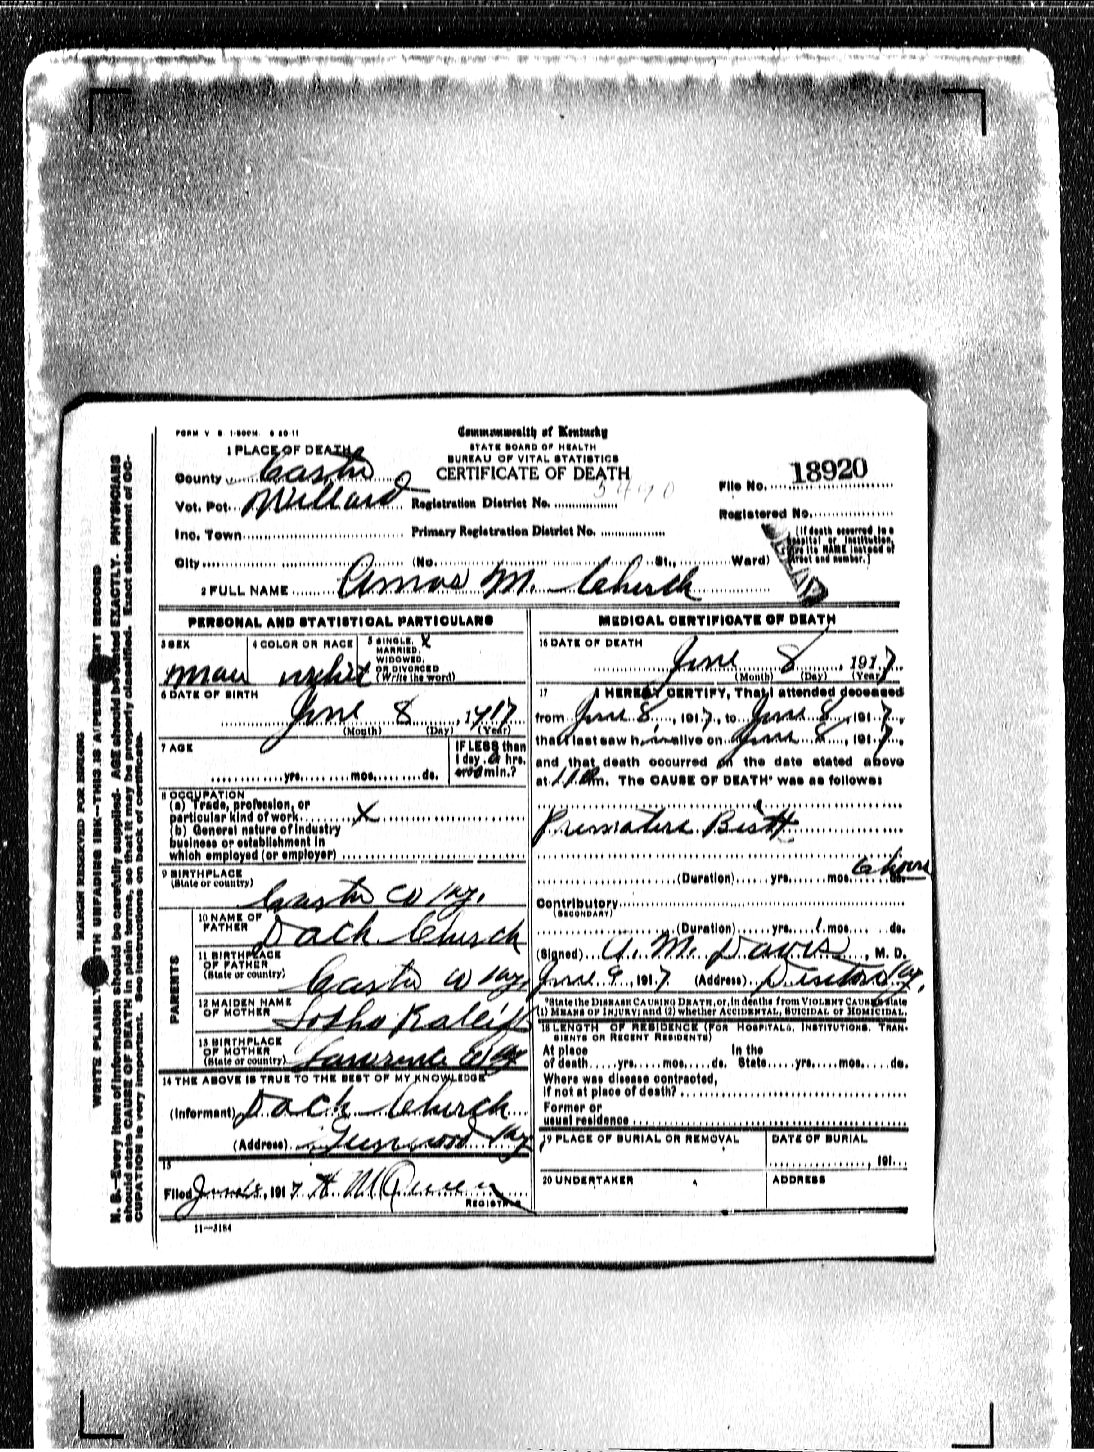 FORM V S 1-50M. 6 20-11
Commonwealth of Kentucky
STATE BOARD OF HEALTH
BUREAU OF VITAL STATISTICS
CERTIFICATE OF DEATH
1 PLACE OF DEATH
County Carter
Vot. Pct. Willard Registration District No.
File No. 18920
Registered No.
Inc. Town Primary Registration District No.
(If death occurred in a
hospital or institution,
give its NAME instead of
street and number.)
City (No. St., Ward)
2 FULL NAME Amos M. Church
PERSONAL AND STATISTICAL PARTICULARS
3 SEX
Mail
4 COLOR OR RACE
whit
5 SINGLE, X
MARRIED,
WIDOWED,
OR DIVORCED
(Write the word)
6 DATE OF BIRTH
June 8, 1917
(Month) (Day) (Year)
7 AGE
yrs. mos. ds.
IF LESS than
1 day hrs.
or min.?
8 OCCUPATION
(a) Trade, profession, or
particular kind of work X
(b) General nature of industry
business or establishment in
which employed (or employer)
9 BIRTHPLACE
(State or country)
Carter Co Ky.
PARENTS
10 NAME OF
FATHER
Dach Church
11 BIRTHPLACE
OF FATHER
(State or country)
Carter Co Ky
12 MAIDEN NAME
OF MOTHER
13 BIRTHPLACE
OF MOTHER
(State or country)
14 THE ABOVE IS TRUE TO THE BEST OF MY KNOWLEDGE
(Informant) Dach Church
(Address) Ky
15
Filed 1917
REGISTRAR
11—3184
MEDICAL CERTIFICATE OF DEATH
16 DATE OF DEATH
June 8, 1917
(Month) (Day) (Year)
17 I HEREBY CERTIFY, That I attended deceased
from June 8, 1917, to June 8, 1917,
that I last saw him alive on June 8, 1917,
and that death occurred on the date stated above
at m. The CAUSE OF DEATH* was as follows:
Premature Birth
(Duration) yrs. mos. 6 hours ds.
Contributory
(SECONDARY)
(Duration) yrs. mos. ds.
(Signed) M. Davis, M. D.
June 9, 1917 (Address) Ky.
*State the DISEASE CAUSING DEATH, or, in deaths from VIOLENT CAUSES, state
(1) MEANS OF INJURY; and (2) whether ACCIDENTAL, SUICIDAL or HOMICIDAL.
18 LENGTH OF RESIDENCE (FOR HOSPITALS, INSTITUTIONS, TRAN-
SIENTS OR RECENT RESIDENTS)
At place In the
of death yrs. mos. ds. State yrs. mos. ds.
Where was disease contracted,
if not at place of death?
Former or
usual residence
19 PLACE OF BURIAL OR REMOVAL
DATE OF BURIAL
191
20 UNDERTAKER
ADDRESS
MARGIN RESERVED FOR BINDING
WRITE PLAINLY WITH UNFADING INK—THIS IS A PERMANENT RECORD
N. B.—Every item of information should be carefully supplied. AGE should be stated EXACTLY. PHYSICIANS
should state CAUSE OF DEATH in plain terms, so that it may be properly classified. Exact statement of OC-
CUPATION is very important. See instructions on back of certificate.